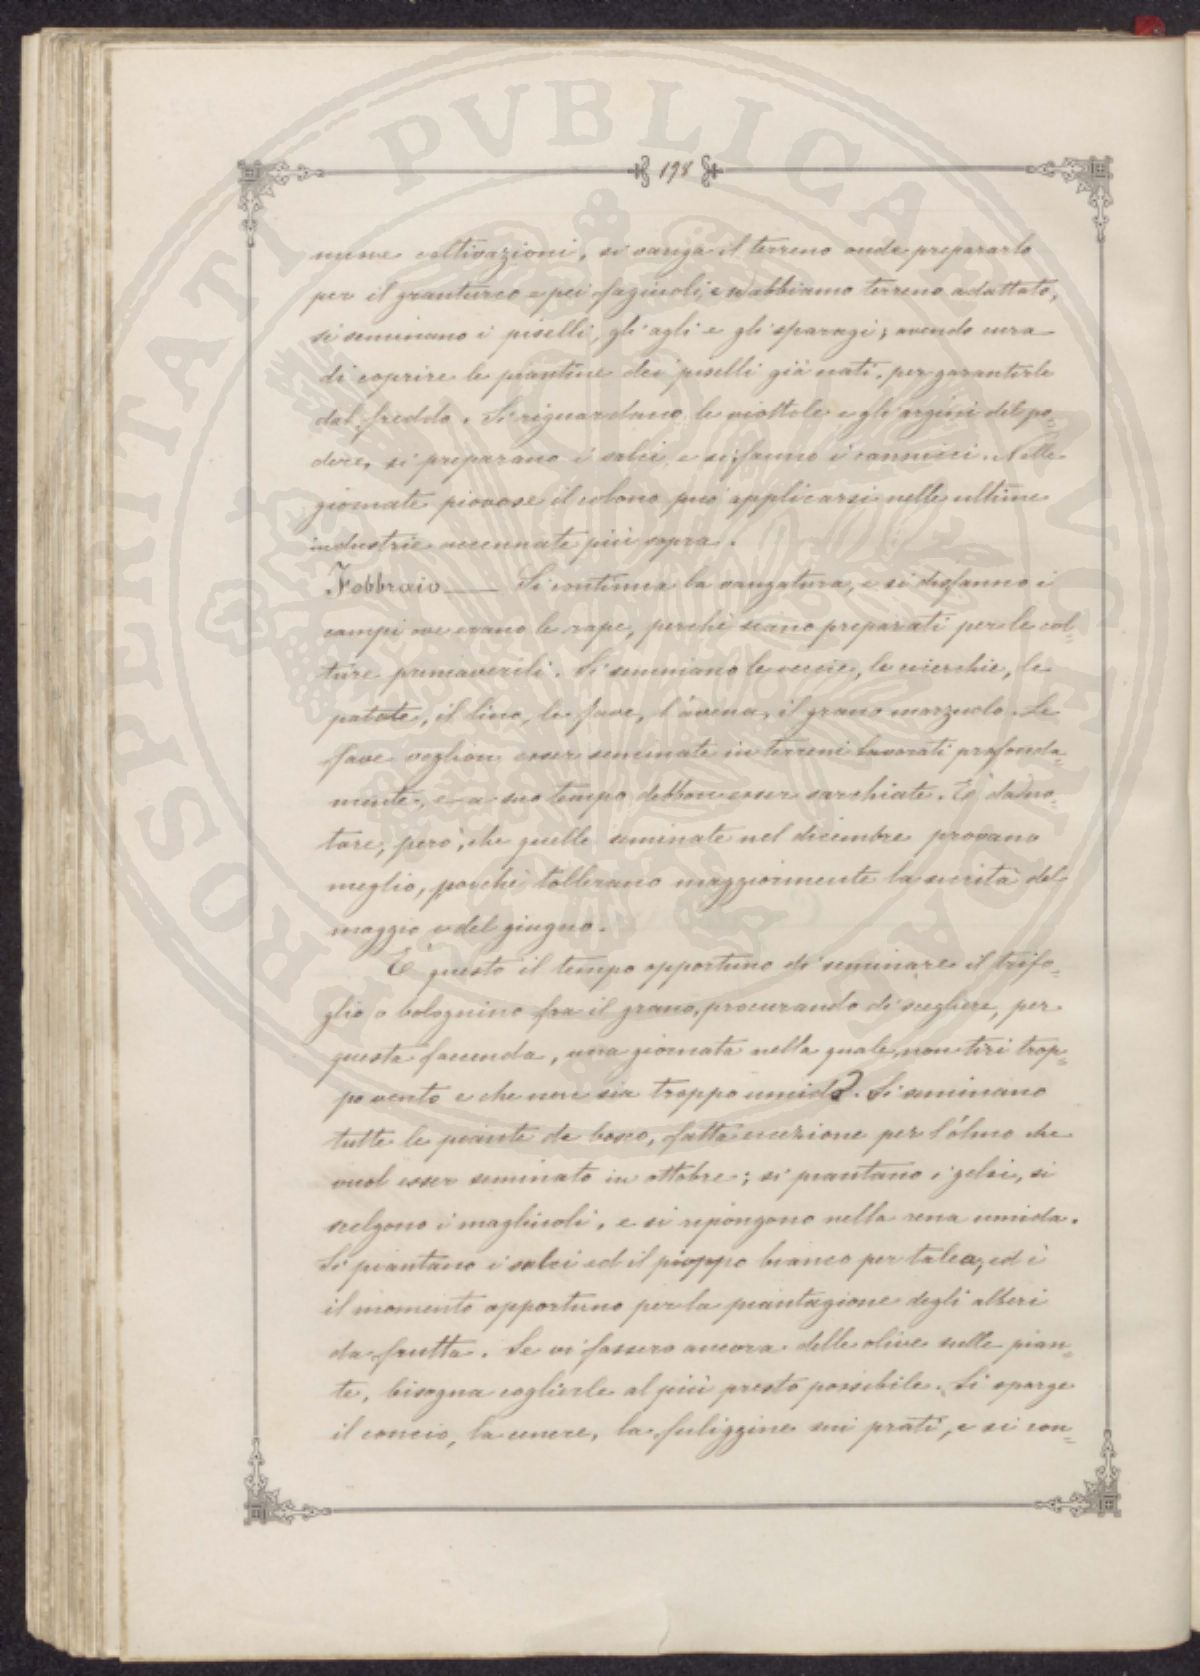 198
nuove coltivazioni, si vanga il terreno onde prepararlo
per il granturco e pei fagiuoli, e se abbiamo terreno adattato,
si seminano i piselli, gli agli e gli sparagi; avendo cura
di coprire le piantine dei piselli già nati, per garantirle
dal freddo. Si riguardano le viottole e gli argini del po-
dere, si preparano i salci e si fanno i cannicci. Nelle
giornate piovose il colono può applicarsi nelle ultime
industrie accennate più sopra.
Febbraio — Si continua la vangatura, e si disfanno i
campi ove erano le rape, perchè siano preparati per le col=
ture primaverili. Si seminano le veccie, le cicerchie, le
patate, il lino, le fave, l'avena, il grano marzuolo. Le
fave voglion esser seminate in terreni lavorati profonda=
mente, e a suo tempo debbon esser sarchiate. È da no=
tare, però, che quelle seminate nel dicembre provano
meglio, poichè tollerano maggiormente la siccità del
maggio e del giugno.
È questo il tempo opportuno di seminare il trifo=
glio o bolognino fra il grano, procurando di scegliere, per
questa faccenda, una giornata nella quale non tiri trop=
po vento e che non sia troppo umida. Si seminano
tutte le piante da bosco, fatta eccezione per l'olmo che
vuol esser seminato in ottobre; si piantano i gelsi, si
scelgono i magliuoli, e si ripongono nella rena umida.
Si piantano i salci ed il pioppo bianco per talea, ed è
il momento opportuno per la piantagione degli alberi
da frutta. Se vi fossero ancora delle olive sulle pian=
te, bisogna coglierle al più presto possibile. Si sparge
il concio, la cenere, la fuliggine sui prati, e si con=
PROSPERITATI PVBLICAE AVGENDAE